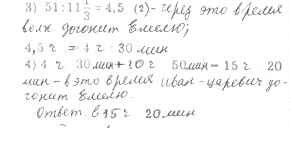 3) 51:11 1/3 = 4,5 (ч)- через это время
волк догонит Емелю;
4,5 ч = 4 ч 30 мин
4) 4 ч 30 мин + 10 ч 50 мин = 15 ч 20
мин - в это время Иван-царевич до-
гонит Емелю.
Ответ. в 15 ч 20 мин